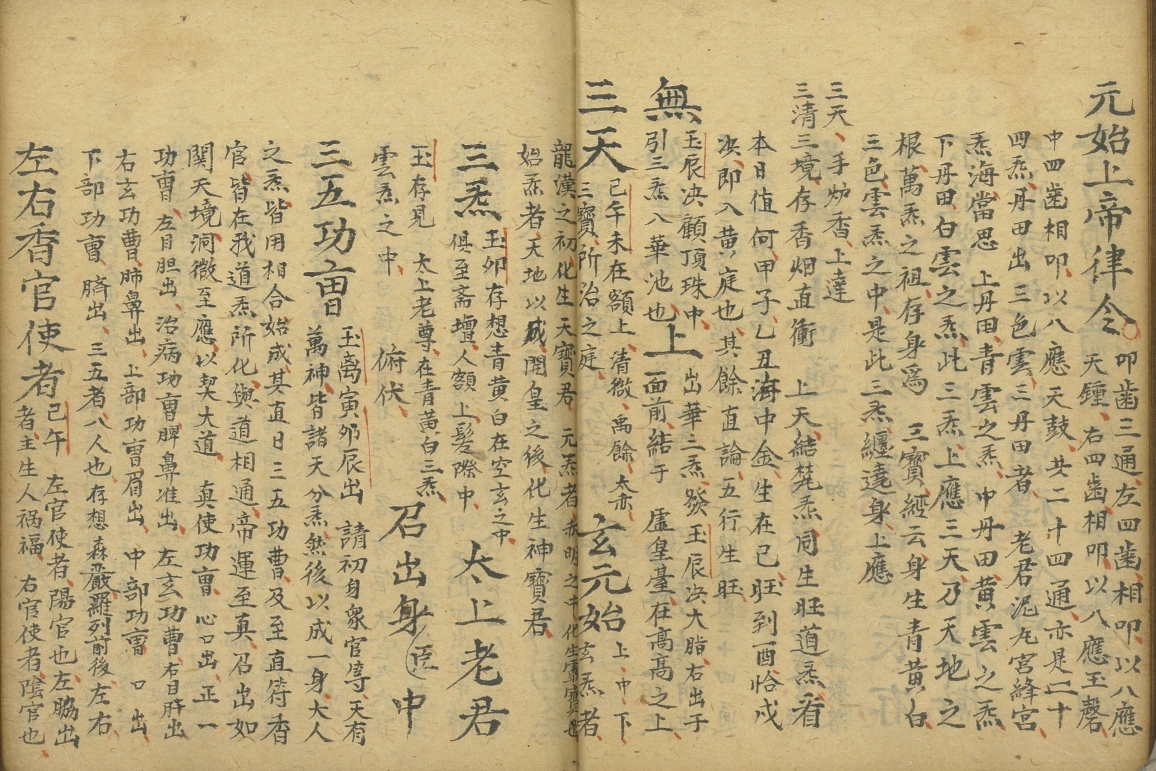 元始上帝律令 叩齒三通左四齒相叩以八應
天鍾右四齒相叩以八應玉磬
中四齒相叩以八應天鼓共二十四通亦是二十
四炁丹田出三色雲三丹田者 老君泥丸宮絳宮
炁海當思 上丹田青雲之炁中丹田黃雲之炁
下丹田白雲之炁此三炁上應三天乃天地之
根萬炁之祖存身為 三寶經云身生青黃白
三色雲炁之中是此三炁纏遶身上應
三天手炉香上達
三清三境存香烟直衝 上天結梵炁同生旺道炁看
本日值何甲子乙丑海中金生在巳旺到酉恰戍
決即入黃庭也其餘直論五行生旺
無 玉辰決顧頂珠中 出華二炁發玉辰決大脂右出子
引三炁八華池也上 面前結于 虛皇臺在高高之上
三天 巳午未在額上清微禹餘太赤 玄元始 上中下
三寶所治之庭 玄炁者
龍漢之初化生天寶君 元炁者赤明之中化生靈寶君
始炁者天地以成開皇之後化生神寶君
三炁 玉卯存想青黃白在空玄之中 太上老君
俱至斋壇人額上髮際中
玉存見 太上老尊在青黃白三炁 召出身臣中
雲炁之中 俯伏
三五功曹 玉离寅夘辰出 請初身衆官等天有
萬神皆諸天分炁然後以成一身大人
之炁皆用相合始成其直日三五功曹及至直符香
官皆在我道炁所化與道相通帝運至真召出如
関天境洞微至應以契大道 真使功曹心口出正一
功曹左目胆出治病功曹脾鼻准出左玄功曹右目肝出
右玄功曹肺鼻出上部功曹眉出中部功曹 口出
下部功曹臍出三五者八人也存想森嚴羅列前後左右
左右香官使者 巳午 左官使者陽官也左脇出
者主生人禍福 右官使者陰官也